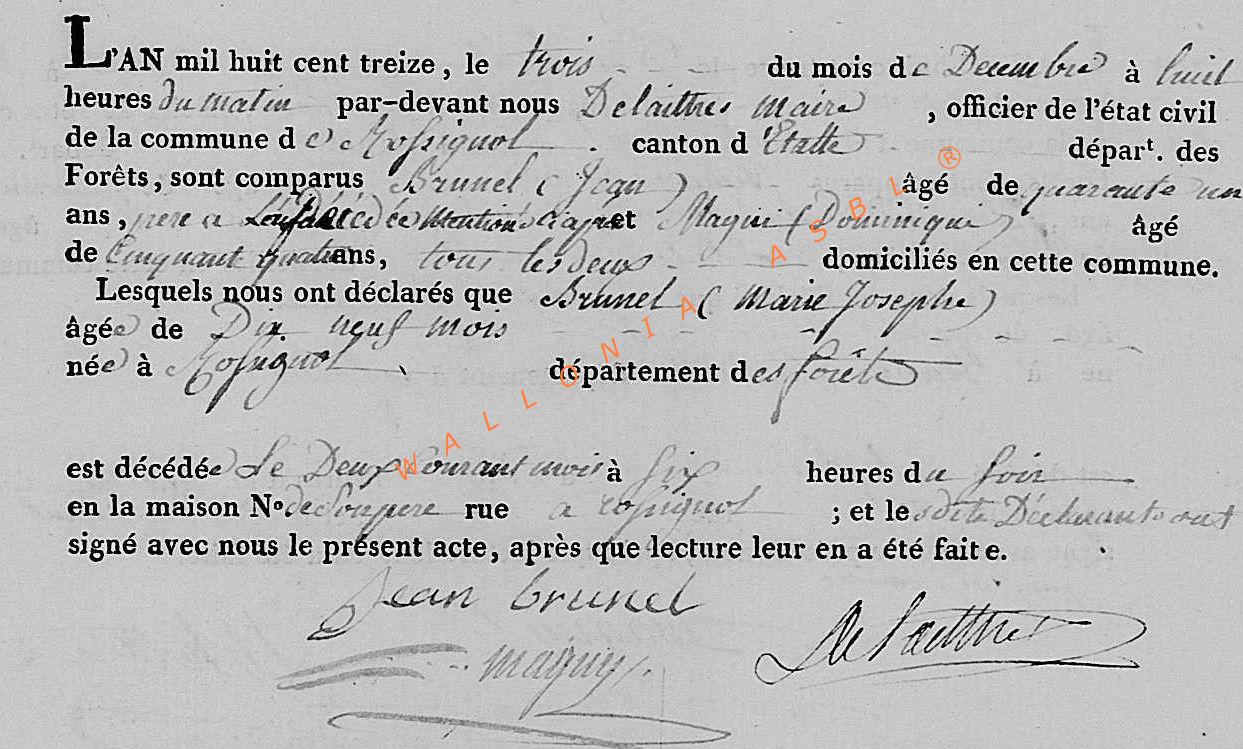 L'AN mil huit cent treize, le trois du mois de Decembre à huit
heures du matin par-devant nous Delaittres maire, officier de l'état civil
de la commune de Rossignol canton d'Etalle départ. des
Forêts, sont comparus Brunel (Jean) âgé de quarante un
ans, pere a décédée mention et Magui (Dominique) âgé
de Cinquant quatre ans, tous les deux domiciliés en cette commune.
Lesquels nous ont déclarés que Brunel (Marie Josephe)
âgée de Dix neuf mois
née à Rossignol département des forêts
est décédée Le Deux Courant mois à six heures du soir
en la maison No. de son pere rue a rossignol ; et lesdits Déclarants ont
signé avec nous le présent acte, après que lecture leur en a été faite.
Jean brunel
maguy
Delaittres
WALLONIA ASBL ®